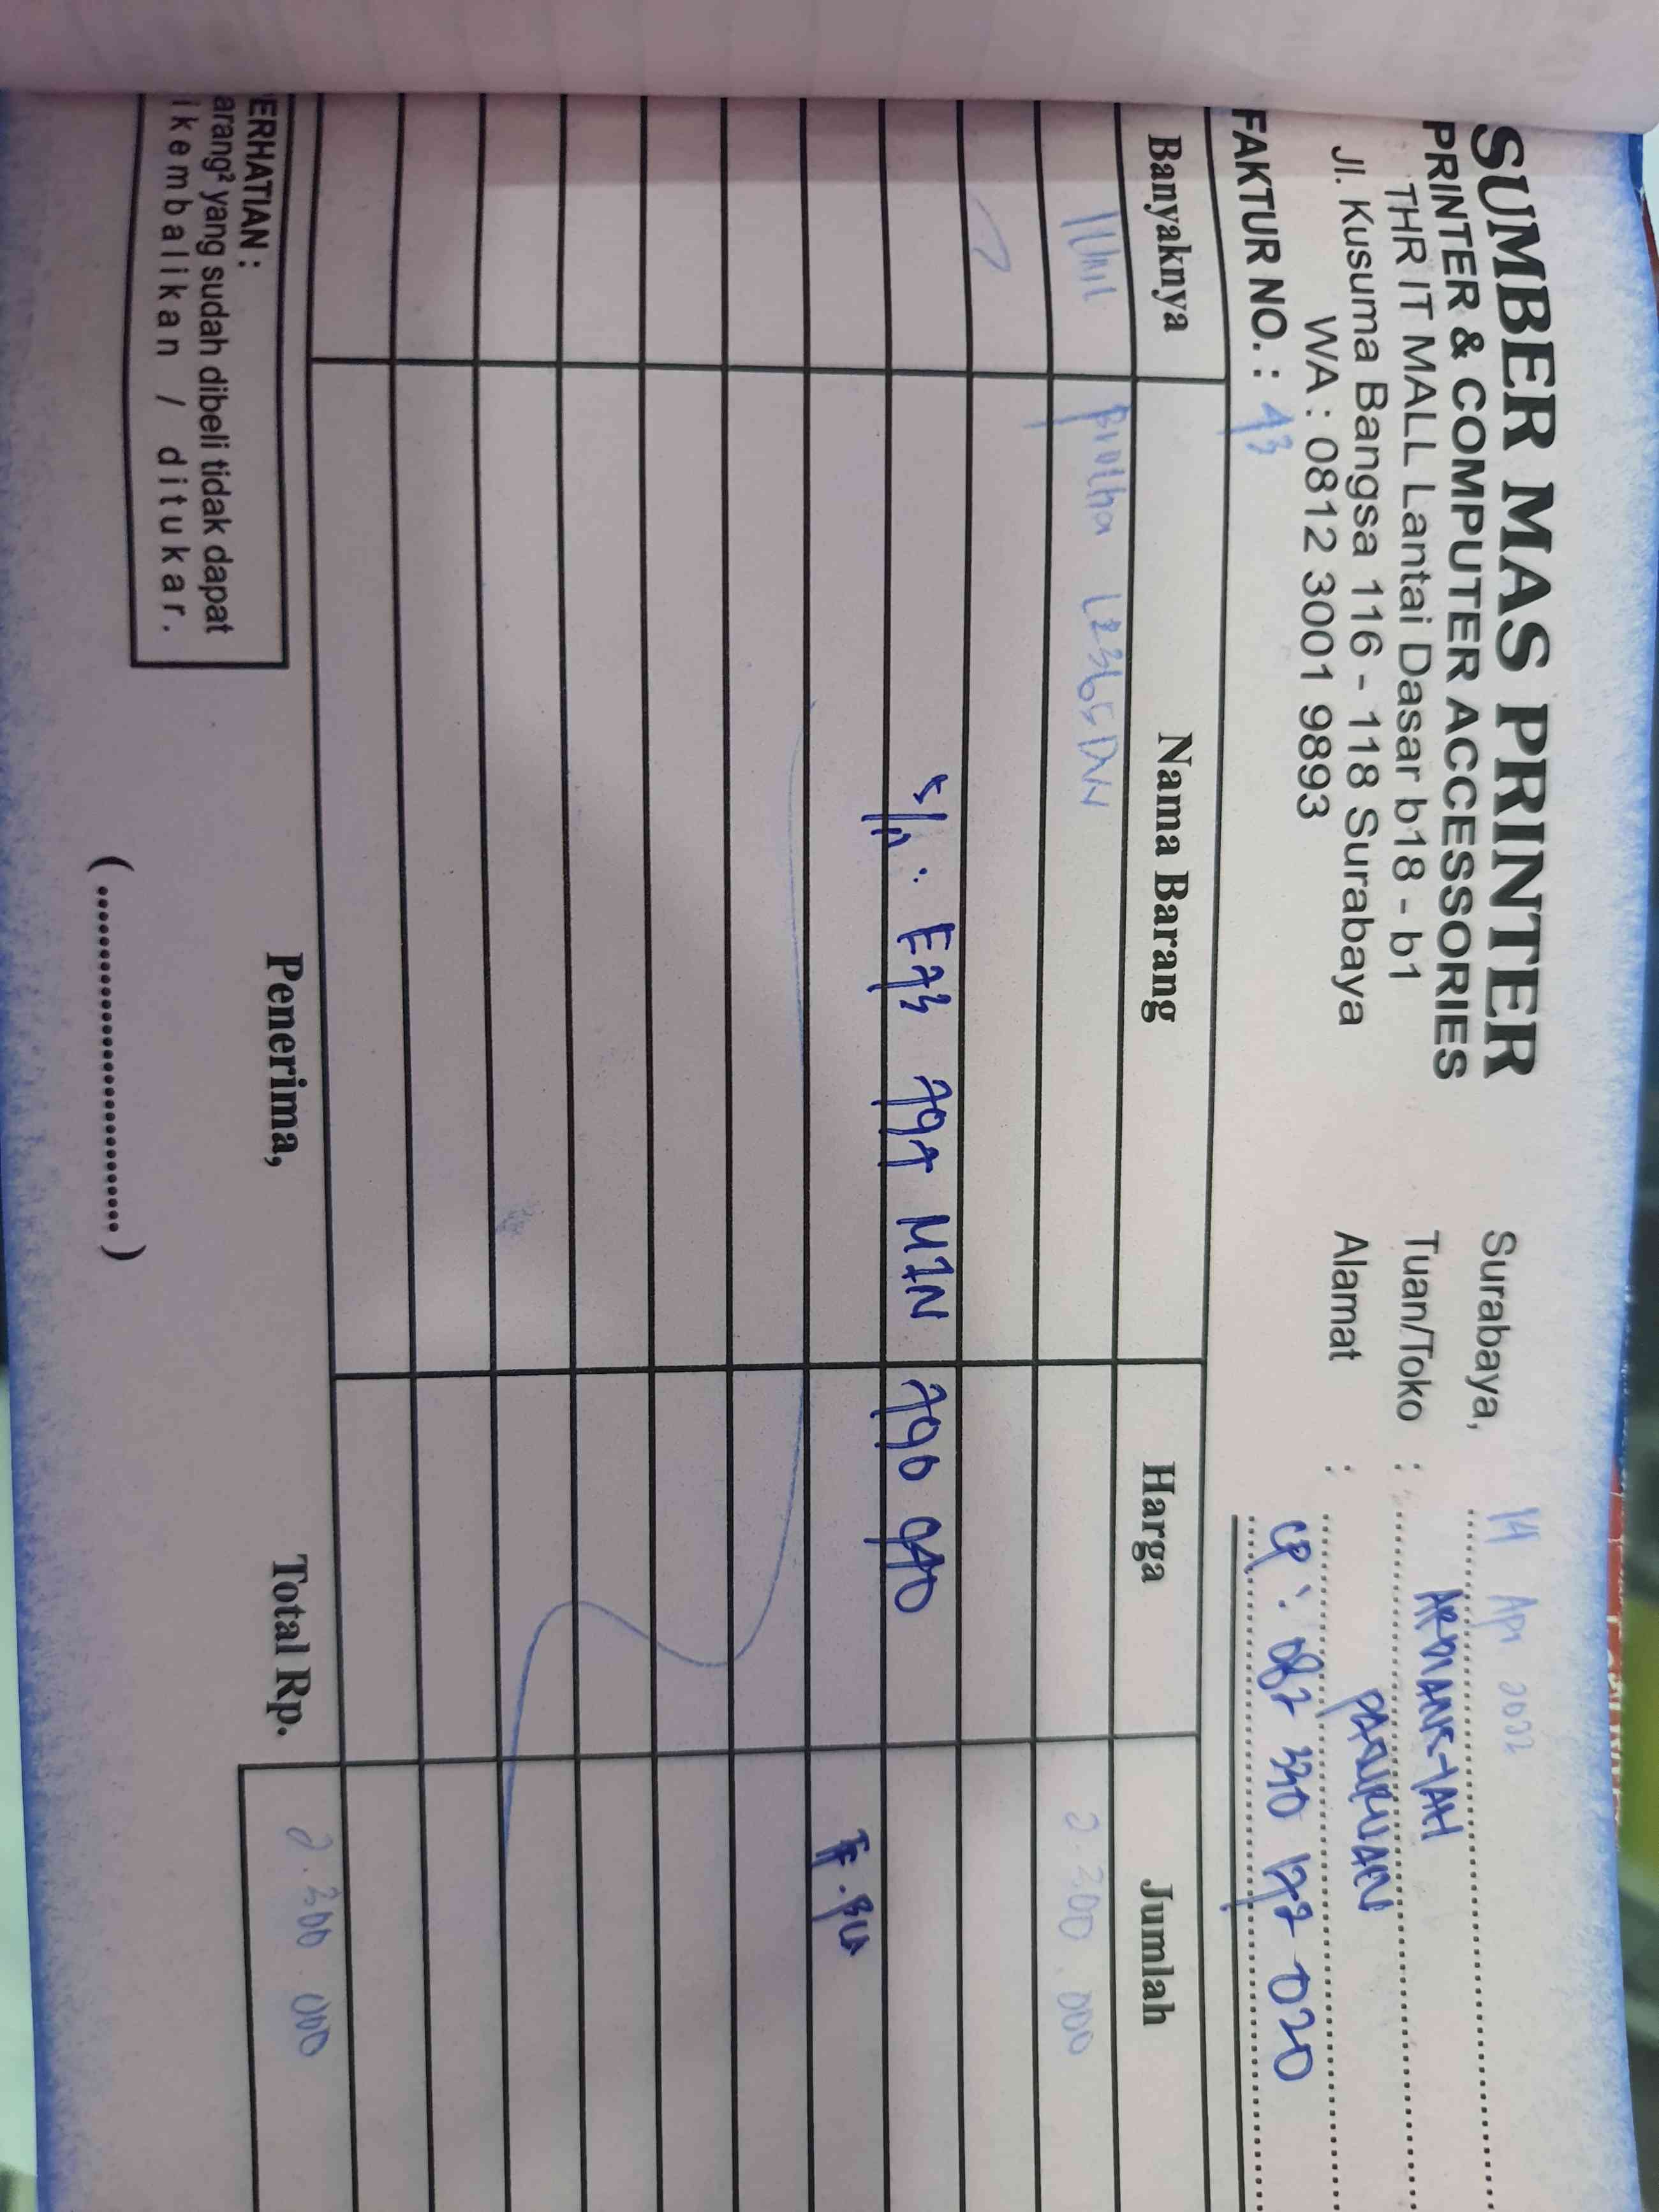 SUMBER MAS PRINTER
PRINTER & COMPUTER ACCESSORIES
THR IT MALL Lantai Dasar b18 - b1
Jl. Kusuma Bangsa 116 - 118 Surabaya
WA : 0812 3001 9893
Surabaya, 14 Apr 2022
Tuan/Toko :
Alamat : PASURUAN
CP : 082 330 177 020
FAKTUR NO. : 43
Banyaknya Nama Barang Harga Jumlah
L2365DW 2.300.000
S/N : E73 797 M1N 790 940
ERHATIAN :
arang² yang sudah dibeli tidak dapat
ikembalikan / ditukar.
Penerima,
Total Rp. 2.300.000
(..............................)